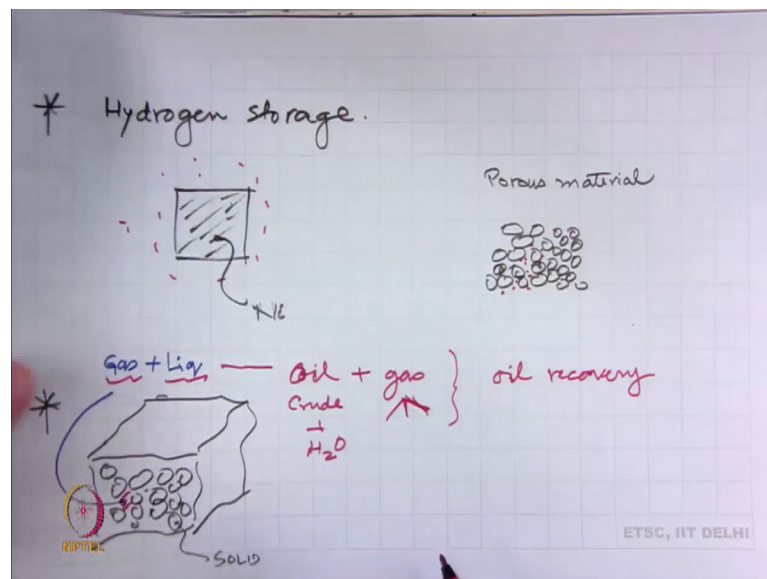 * Hydrogen storage.
Porous material
Gas + Liq — Oil + gas } oil recovery
Crude
+
H₂O
*
SOLID
NPTEL
ETSC, IIT DELHI